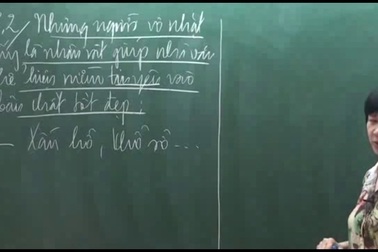 2/ Những người vô nhất
là nhân vật giúp nhà văn
hiện niềm tin yêu vào
bản chất tốt đẹp:
- Xấu hổ, khổ sở...